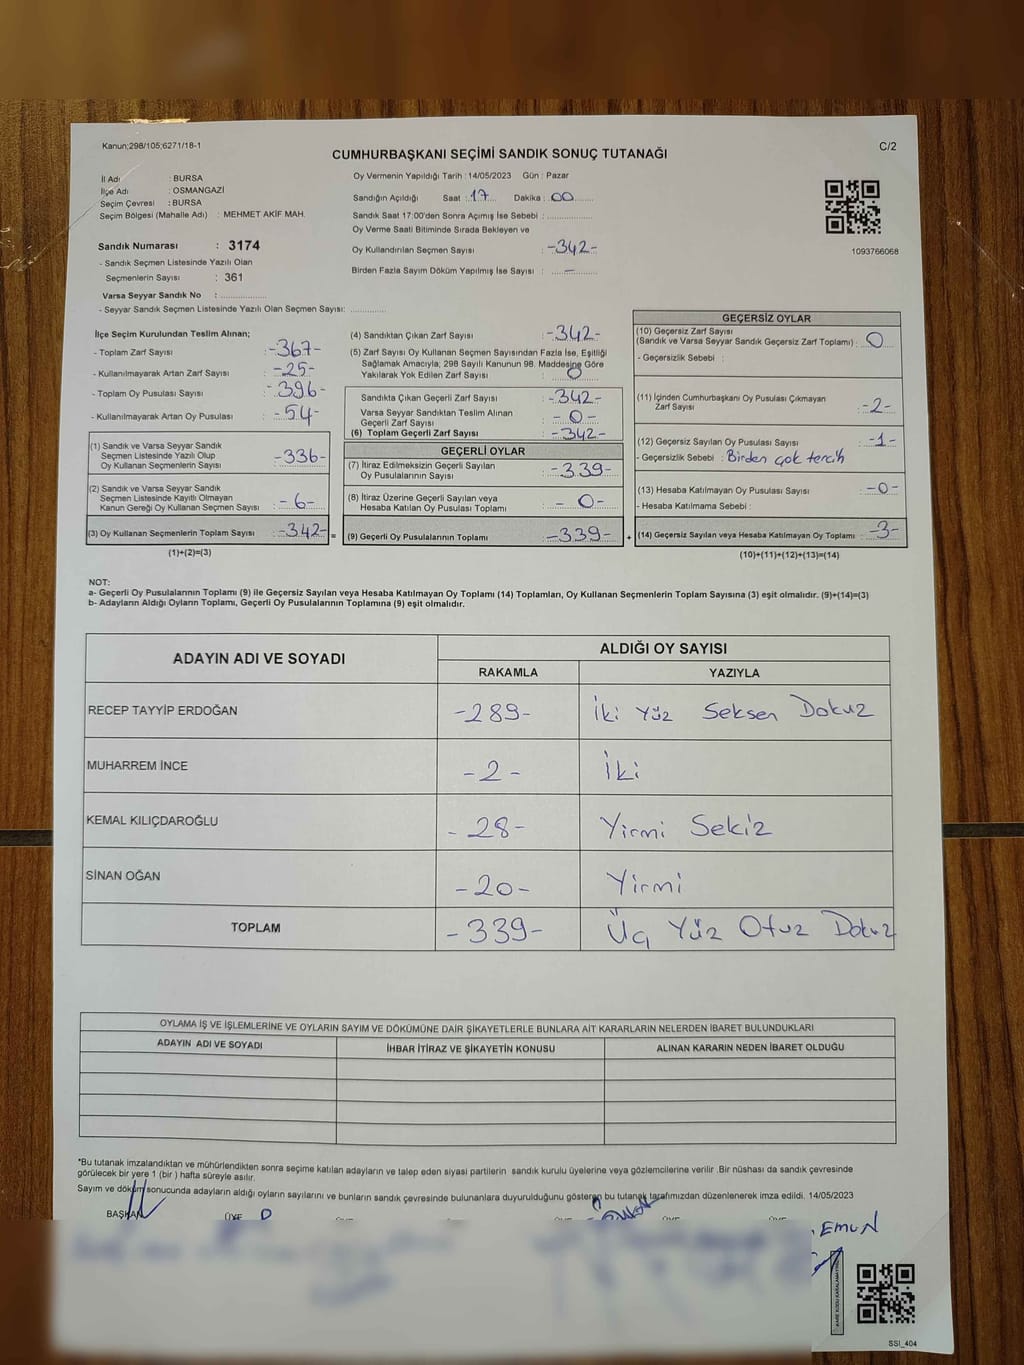 Kanun;298/105;6271/18-1
C/2
CUMHURBAŞKANI SEÇİMİ SANDIK SONUÇ TUTANAĞI
İl Adı : BURSA
İlçe Adı : OSMANGAZİ
Seçim Çevresi : BURSA
Seçim Bölgesi (Mahalle Adı) : MEHMET AKİF MAH.
Sandık Numarası : 3174
- Sandık Seçmen Listesinde Yazılı Olan
Seçmenlerin Sayısı : 361
Varsa Seyyar Sandık No : ....................
- Seyyar Sandık Seçmen Listesinde Yazılı Olan Seçmen Sayısı: ..............
Oy Vermenin Yapıldığı Tarih : 14/05/2023 Gün : Pazar
Sandığın Açıldığı Saat : 17 Dakika : 00
Sandık Saat 17:00'den Sonra Açımış İse Sebebi : ................
Oy Verme Saati Bitiminde Sırada Bekleyen ve
Oy Kullandırılan Seçmen Sayısı : -342-
Birden Fazla Sayım Döküm Yapılmış İse Sayısı : -
1093766068
İlçe Seçim Kurulundan Teslim Alınan;
- Toplam Zarf Sayısı : -367-
- Kullanılmayarak Artan Zarf Sayısı : -25-
- Toplam Oy Pusulası Sayısı : -396-
- Kullanılmayarak Artan Oy Pusulası : -54-
(1) Sandık ve Varsa Seyyar Sandık
Seçmen Listesinde Yazılı Olup
Oy Kullanan Seçmenlerin Sayısı : -336-
(2) Sandık ve Varsa Seyyar Sandık
Seçmen Listesinde Kayıtlı Olmayan
Kanun Gereği Oy Kullanan Seçmen Sayısı : -6-
(3) Oy Kullanan Seçmenlerin Toplam Sayısı : -342- =
(1)+(2)=(3)
(4) Sandıktan Çıkan Zarf Sayısı : -342-
(5) Zarf Sayısı Oy Kullanan Seçmen Sayısından Fazla İse, Eşitliği
Sağlamak Amacıyla, 298 Sayılı Kanunun 98. Maddesine Göre
Yakılarak Yok Edilen Zarf Sayısı : 0
Sandıkta Çıkan Geçerli Zarf Sayısı : -342-
Varsa Seyyar Sandıktan Teslim Alınan
Geçerli Zarf Sayısı : -0-
(6) Toplam Geçerli Zarf Sayısı : -342-
GEÇERLİ OYLAR
(7) İtiraz Edilmeksizin Geçerli Sayılan
Oy Pusulalarının Sayısı : -339-
(8) İtiraz Üzerine Geçerli Sayılan veya
Hesaba Katılan Oy Pusulası Toplamı : -0-
(9) Geçerli Oy Pusulalarının Toplamı : -339- +
GEÇERSİZ OYLAR
(10) Geçersiz Zarf Sayısı
(Sandık ve Varsa Seyyar Sandık Geçersiz Zarf Toplamı) : 0
- Geçersizlik Sebebi :
(11) İçinden Cumhurbaşkanı Oy Pusulası Çıkmayan
Zarf Sayısı : -2-
(12) Geçersiz Sayılan Oy Pusulası Sayısı : -1-
- Geçersizlik Sebebi : Birden çok tercih
(13) Hesaba Katılmayan Oy Pusulası Sayısı : -0-
- Hesaba Katılmama Sebebi :
(14) Geçersiz Sayılan veya Hesaba Katılmayan Oy Toplamı : -3-
(10)+(11)+(12)+(13)=(14)
NOT:
a- Geçerli Oy Pusulalarının Toplamı (9) ile Geçersiz Sayılan veya Hesaba Katılmayan Oy Toplamı (14) Toplamları, Oy Kullanan Seçmenlerin Toplam Sayısına (3) eşit olmalıdır. (9)+(14)=(3)
b- Adayların Aldığı Oyların Toplamı, Geçerli Oy Pusulalarının Toplamına (9) eşit olmalıdır.
ADAYIN ADI VE SOYADI ALDIĞI OY SAYISI
RAKAMLA YAZIYLA
RECEP TAYYİP ERDOĞAN -289- İki Yüz Seksen Dokuz
MUHARREM İNCE -2- İki
KEMAL KILIÇDAROĞLU -28- Yirmi Sekiz
SİNAN OĞAN -20- Yirmi
TOPLAM -339- Üç Yüz Otuz Dokuz
OYLAMA İŞ VE İŞLEMLERİNE VE OYLARIN SAYIM VE DÖKÜMÜNE DAİR ŞİKAYETLERLE BUNLARA AİT KARARLARIN NELERDEN İBARET BULUNDUKLARI
ADAYIN ADI VE SOYADI İHBAR İTİRAZ VE ŞİKAYETİN KONUSU ALINAN KARARIN NEDEN İBARET OLDUĞU
*Bu tutanak imzalandıktan ve mühürlendikten sonra seçime katılan adayların ve talep eden siyasi partilerin sandık kurulu üyelerine veya gözlemcilerine verilir .Bir nüshası da sandık çevresinde
görülecek bir yere 1 (bir ) hafta süreyle asılır.
Sayım ve döküm sonucunda adayların aldığı oyların sayılarını ve bunların sandık çevresinde bulunanlara duyurulduğunu gösteren bu tutanak tarafımızdan düzenlenerek imza edildi. 14/05/2023
BAŞKAN ÜYE
EMUN
SSI_404